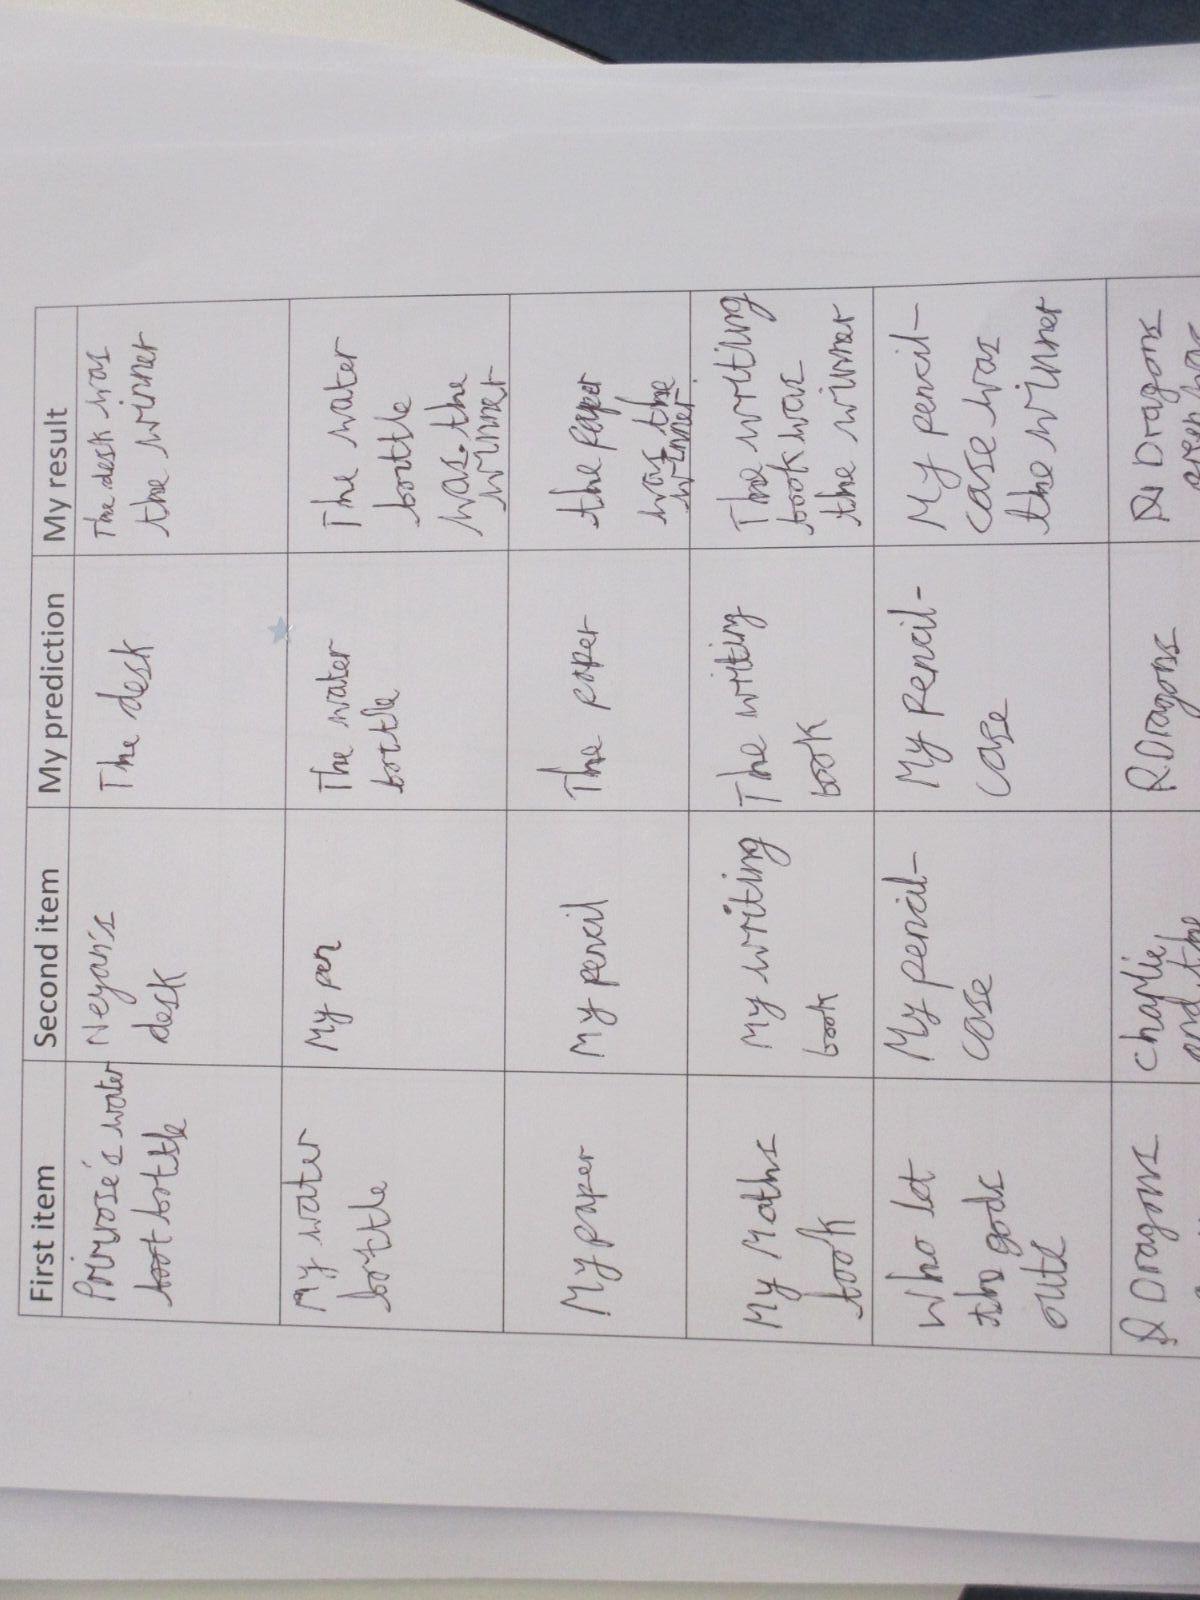 First item Second item My prediction My result
Primrose's water
boot bottle
Neyan's
desk
The desk
The desk was
the winner
My water
bottle
My pen
The water
bottle
The water
bottle
was the
winner
My paper
My pencil
The paper
the paper
was the
winner
My Maths
book
My writing
book
The writing
book
The writing
book was
the winner
Who let
the gods
out
My pencil-
case
My pencil-
case
My pencil-
case was
the winner
Dragons
Charlie
and the
R.Dragons
Dragons